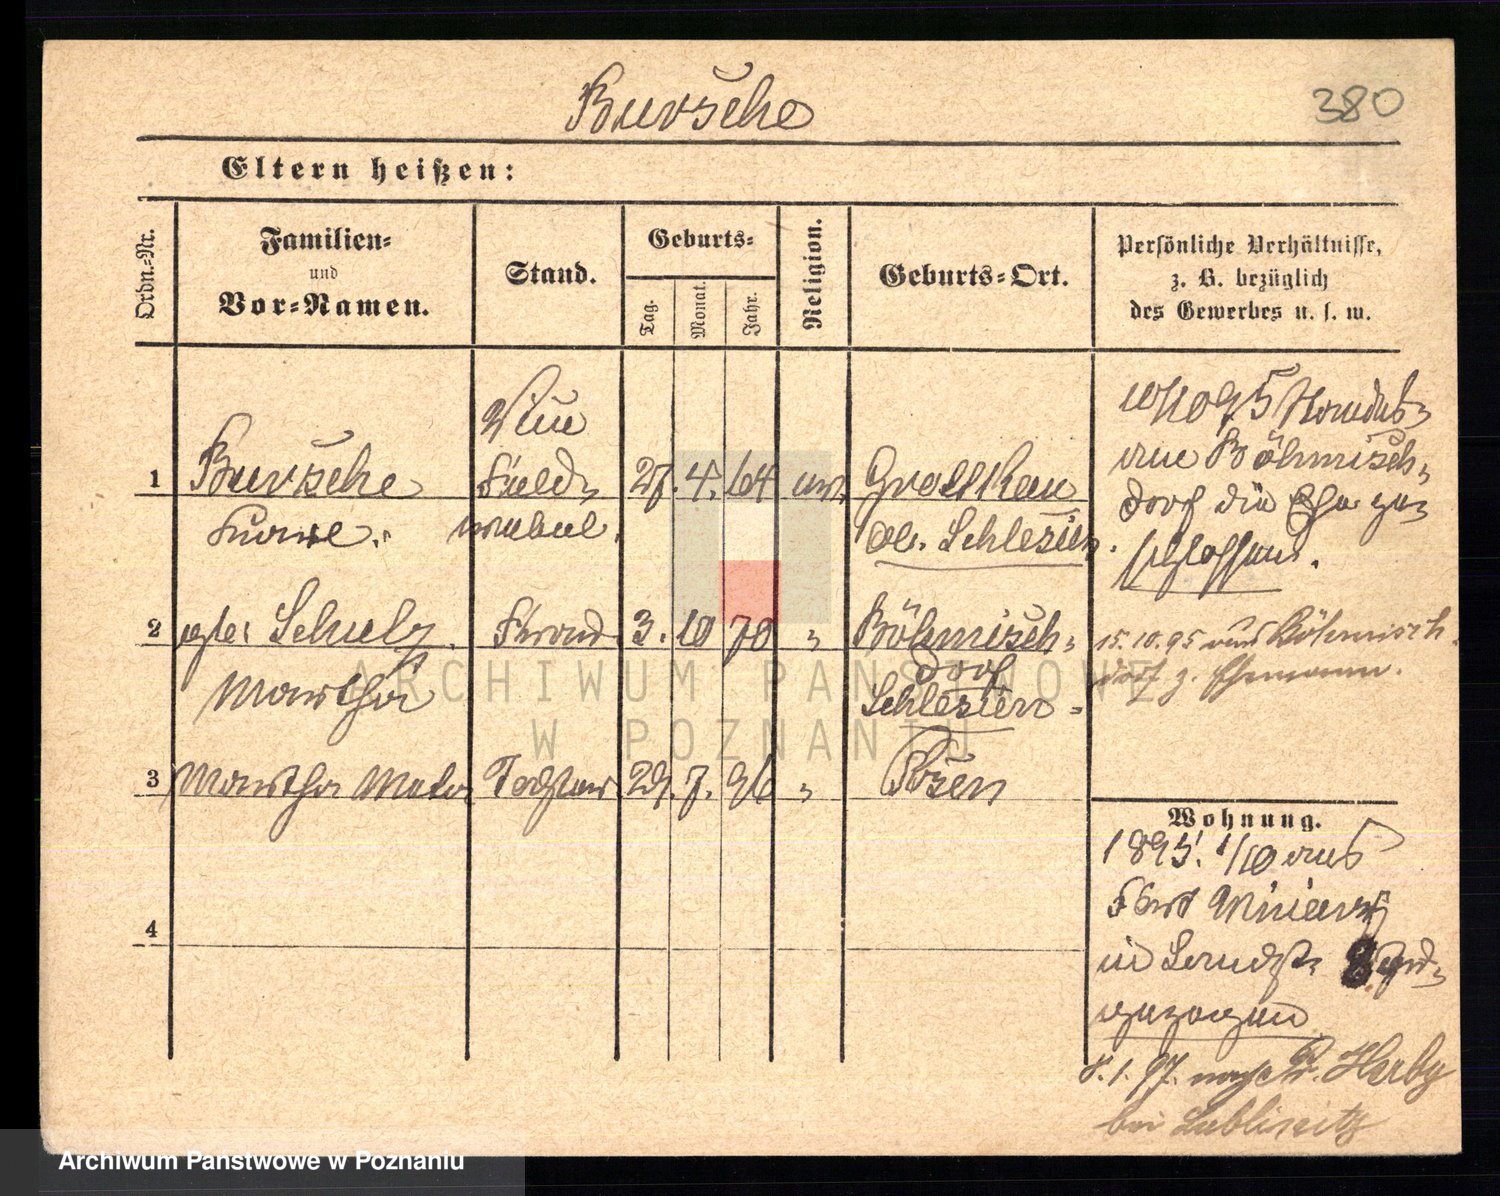 Bursche
380
Eltern heißen:
Ordn.-Nr.
Familien-
und
Vor-Namen.
Stand.
Geburts-
Tag.
Monat.
Jahr.
Religion.
Geburts-Ort.
Persönliche Verhältnisse,
z. B. bezüglich
des Gewerbes u. s. w.
1
Bursche
Franz
Feld-
webel.
27. 4. 64
Grottkau
Ob. Schlesien.
Böhmisch-
dorf die Ehe ge-
schlossen.
2
geb. Schulz
Martha
3. 10 70 "
Böhmisch-
dorf
Schlesien
15. 10. 95 aus Böhmisch-
dorf z. Ehemann.
3
Martha
Tochter
29. 7. 96 "
Posen
Wohnung.
1895. 1/10 aus
Fort Winiary
in
gezogen
8. 1. 97. nach Pr. Herby
bei Lublinitz
4
ARCHIWUM PAŃSTWOWE
W POZNANIU
Archiwum Państwowe w Poznaniu